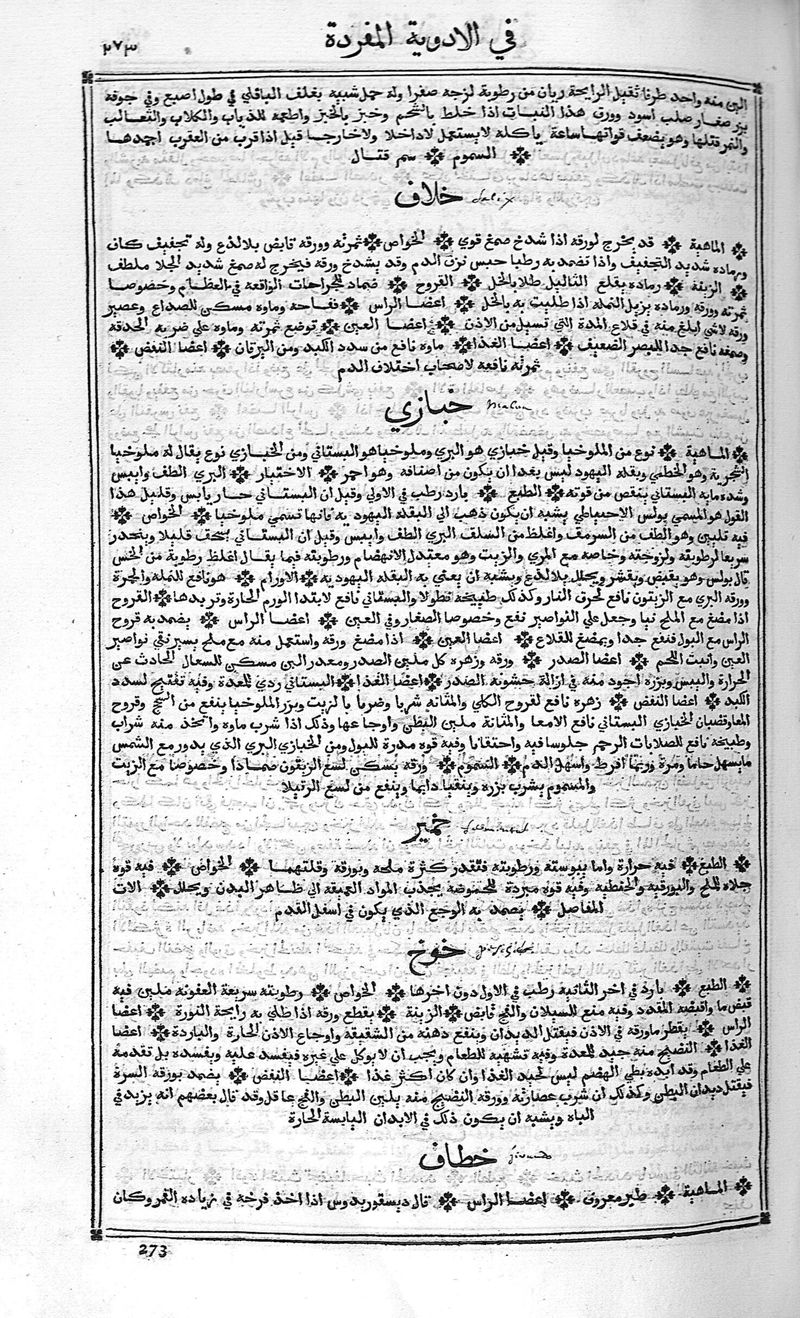 في الادوية المفردة
٢٧٣
الين منه واحد طرفا ثقيل الرايحة ريان من رطوبة لزجه صفرا وله حمل شبيه بغلف الباقلي في طول اصبع وفي جوفه
بزر صغار صلب اسود وورق هذا النبات اذا خلط بالشحم وخبز بالخبز واطعمه للذياب والكلاب والثعالب
والنمر قتلها وهو يضعف قواتها ساعة ياكله لا يستعمل لا داخلا ولا خارجا قيل اذا قرب من العقرب اجمدها
السموم سم قتال
خلاف Salex
الماهية قد يخرج لورقه اذا شدخ صمغ قوي الخواص ثمرته وورقه قابض بلا لذع وله تجفيف كان
ورماده شديد التجفيف واذا تضمد به رطبا حبس نزف الدم وقد يشدخ ورقه فيخرج له صمغ شديد الجلا ملطف
الزينة رماده يقلع الثاليل طلا بالخل القروح ضماد للجراحات الواقعه في العظام وخصوصا
ثمرته وورقه ورماده يزيل النمله اذا طليت به بالخل اعضا الراس فقاحه وماوه مسكن للصداع وعصير
ورقه لا شي ابلغ منه في قلاع المدة التي تسيل من الاذن اعضا العين توضع ثمرته وماوه علي ضربه الحدقه
وصمغه نافع جدا للبصر الضعيف اعضا الغذا ماوه نافع من سدد الكبد ومن اليرقان اعضا النفض
ثمرته نافعه لاصحاب اختلاف الدم
خبازي Malua
الماهية نوع من الملوخيا وقيل خبازي هو البري وملوخيا هو البستاني ومن الخبازي نوع يقال له ملوخيا
الشجرية وهو الخطمي وبقله اليهود ليس بعدا ان يكون من اصنافه وهو احمر الاختيار البري الطف وايبس
وشده مايه البستاني ينقص من قوته الطبع بارد رطب في الاولي وقيل ان البستاني حار يابس وقليل هذا
القول هو المسمي بولس الاجنياطي يشبه ان يكون ذهب الي البقله اليهود يه فانها تسمي ملوخيا الخواص
فيه تليين وهو الطف من السرمق واغلظ من السلف البري الطف وايبس وقيل ان البستاني يسخف قليلا وينحدر
سريعا لرطوبته ولزوجته وخاصه مع المري والزيت وهو معتدل الانهضام ورطوبته فيما يقال اغلظ رطوبة من الخس
قال بولس وهو يقبض ويقشر ويحلل بلا لذع ويشبه ان يعني به البقله اليهود يه الاورام هو نافع للنمله والحمرة
وورقه البري مع الزيتون نافع لحرق النار وكذلك طبيخه نطولا والبستاني نافع لابتدا الورم الحارة وتربدها القروح
اذا مضغ مع الملح نيا وجعل علي النواصير نفع وخصوصا الصغار وفي العين اعضا الراس يضمد به قروح
الراس مع البول فينفع جدا ويمضغ للقلاع اعضا العين اذا مضغ ورقه واستعمل منه مع ملح يسير نقي نواصير
العين وانبت اللحم اعضا الصدر ورقه وزهره كل ملين الصدر ومعدر البن مسكن للسعال الحادث عن
الحرارة واليبس وبزره اجود منه في ازالة خشونة الصدر اعضا الغذا البستاني ردي للمعدة وفيه تفتيح لسدد
الكبد اعضا النفض زهره نافع لقروح الكلي والمثانه شربا وضربا بالزيت وبزر الملوخيا ينفع من السحج وقروح
المعا وقضبان الخبازي البستاني نافع الامعا والمثانة ملين البطن واوجاعها وذلك اذا شرب ماوه واتخذ منه شراب
وطبيخه نافع للصلابات الرحم جلوسا فيه واحتقانا وفيه قوه مدرة للبول ومن الخبازي البري الذي يدور مع الشمس
ما يسهل حاما ومرة وربما افرط واسهل الدم السموم ورقه يسكن لسع الزيتون ضمادا وخصوصا مع الزيت
والمسموم يشرب بزره وينقيا دايما وينفع من لسع الرتيلا
خمير
الطبع فيه حرارة واما يبوسته ورطوبته فتقدر كثرة ملحه وبورقه وقلتهما الخواص فيه قوه
جلاه للملح والبورقيه والخنطيه وفيه قوه مبردة للحموضه يجذب المواد العميقه الي ظاهر البدن ويحلل الات
المفاصل يضمد به الوجع الذي يكون في اسفل القدم
خوخ
الطبع بارد في اخر الثانية رطب في الاول دون اخرها الخواص رطوبته سريعة العفونه ملين فيه
قبض ما واقبضه المقدد وفيه منع للسيلان والفج قابض الزينة يقطع ورقه اذا طلي به رايحة النورة اعضا
الراس يقطر ما ورقه في الاذن فيقتل الديدان وينفع دهنه من الشقيقة واوجاع الاذن الحارة والباردة اعضا
الغذا النضيج منه جيد للمعدة وفيه تشهيه للطعام ويجب ان لا يوكل علي غيره فيفسد عليه ويفسده بل تقدمه
علي الطعام وقد ايده بطي الهضم ليس بجيد الغذا وان كان اكثر غذا اعضا النفض يضمد بورقه السرة
فيقتل ديدان البطن وكذلك ان شرب عصارته وورقه النضيج منه يلين البطن والفج عاقل وقد قال بعضهم انه يزيد في
الباه ويشبه ان يكون ذلك في الابدان اليابسة الحارة
خطاف
الماهية طير معروف اعضا الراس قال ديسقوريدوس اذا اخذ فرخه في زياده القمر وكان
273